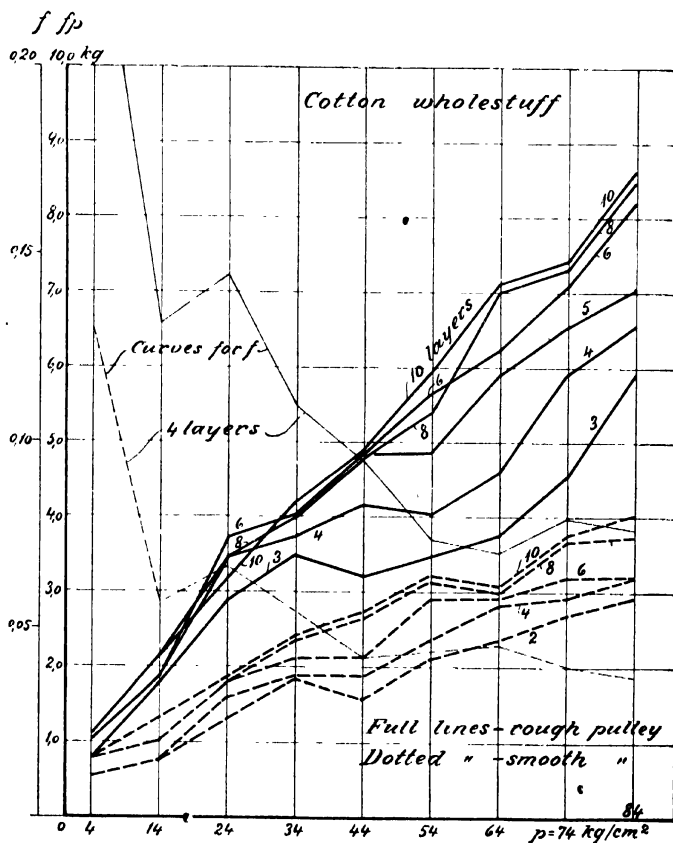 f fp
0,20 10,0 kg
Cotton wholestuff
9,0
8,0
0,15
7,0
6,0
0,10
5,0
4,0
3,0
0,05
2,0
1,0
0
Curves for f
4 layers
10 layers
10
8
6
5
4
3
6
8
6
8
10
3
4
10
8
6
4
2
Full lines – rough pulley
Dotted " – smooth "
84
0 4 14 24 34 44 54 64 p=74 kg/cm²